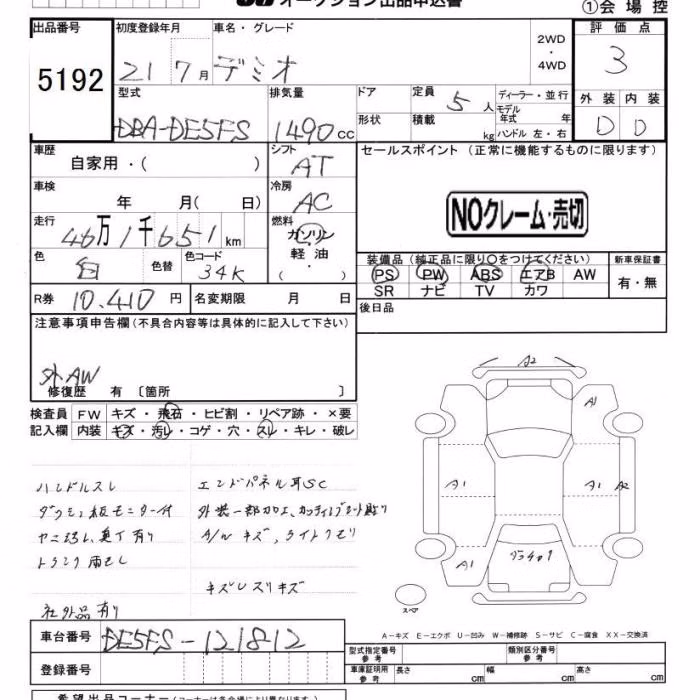 オークション出品申込書
①会場控
出品番号 初度登録年月 車名・グレード 評価点
5192 21 7月 デミオ 2WD・4WD 3
型式 排気量 ドア 定員 5人 ディーラー・並行 外装 内装
DBA-DE5FS 1490cc 形状 積載 kg モデル年式 年 D D
ハンドル 左・右
車歴 自家用・( ) シフト AT セールスポイント (正常に機能するものに限ります)
車検 年 月( 日) 冷房 AC NOクレーム・売切
走行 46万1千651km 燃料 ガソリン・軽油・
色 白 色替 色コード 34K 装備品 (純正品に限り○をつけてください) 新車保証書
PS PW ABS エアB AW 有・無
SR ナビ TV カワ
R券 10.410円 名変期限 月 日 後日品
注意事項申告欄(不具合内容等は具体的に記入して下さい)
外AW
修復歴 有 〔箇所 〕
検査員 FW キズ・飛石・ヒビ割・リペア跡・×要
記入欄 内装 キズ・汚レ・コゲ・穴・スレ・キレ・破レ
ハンドルスレ エンドパネル耳SC
外装一部カロエ、カッティングシート貼り
A/Wキズ、ライトクモリ
キズレスリキズ
社外品有り
A2
A1
A1 A1 A2
A1
スペア
A-キズ E-エクボ U-凹み W-補修跡 S-サビ C-腐食 XX-交換済
車台番号 DE5FS-121812 型式指定番号 参考 類別区分番号 参考
登録番号 車庫証明用 参考 長さ cm 幅 cm 高さ cm
希望出品コーナー(コーナーは各会場により異なります)